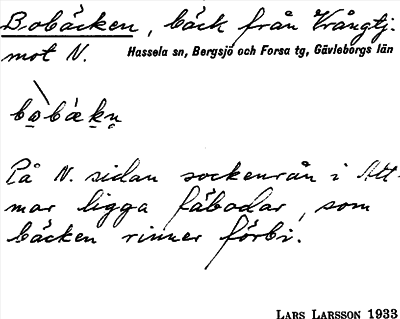 Bobäcken, bäck från Vrångtj.
mot N.
Hassela sn, Bergsjö och Forsa tg, Gävleborgs län
bo̱bä̀ḵn̥
På N. sidan sockenrån i Att-
mar ligga fäbodar, som
bäcken rinner förbi.
LARS LARSSON 1933